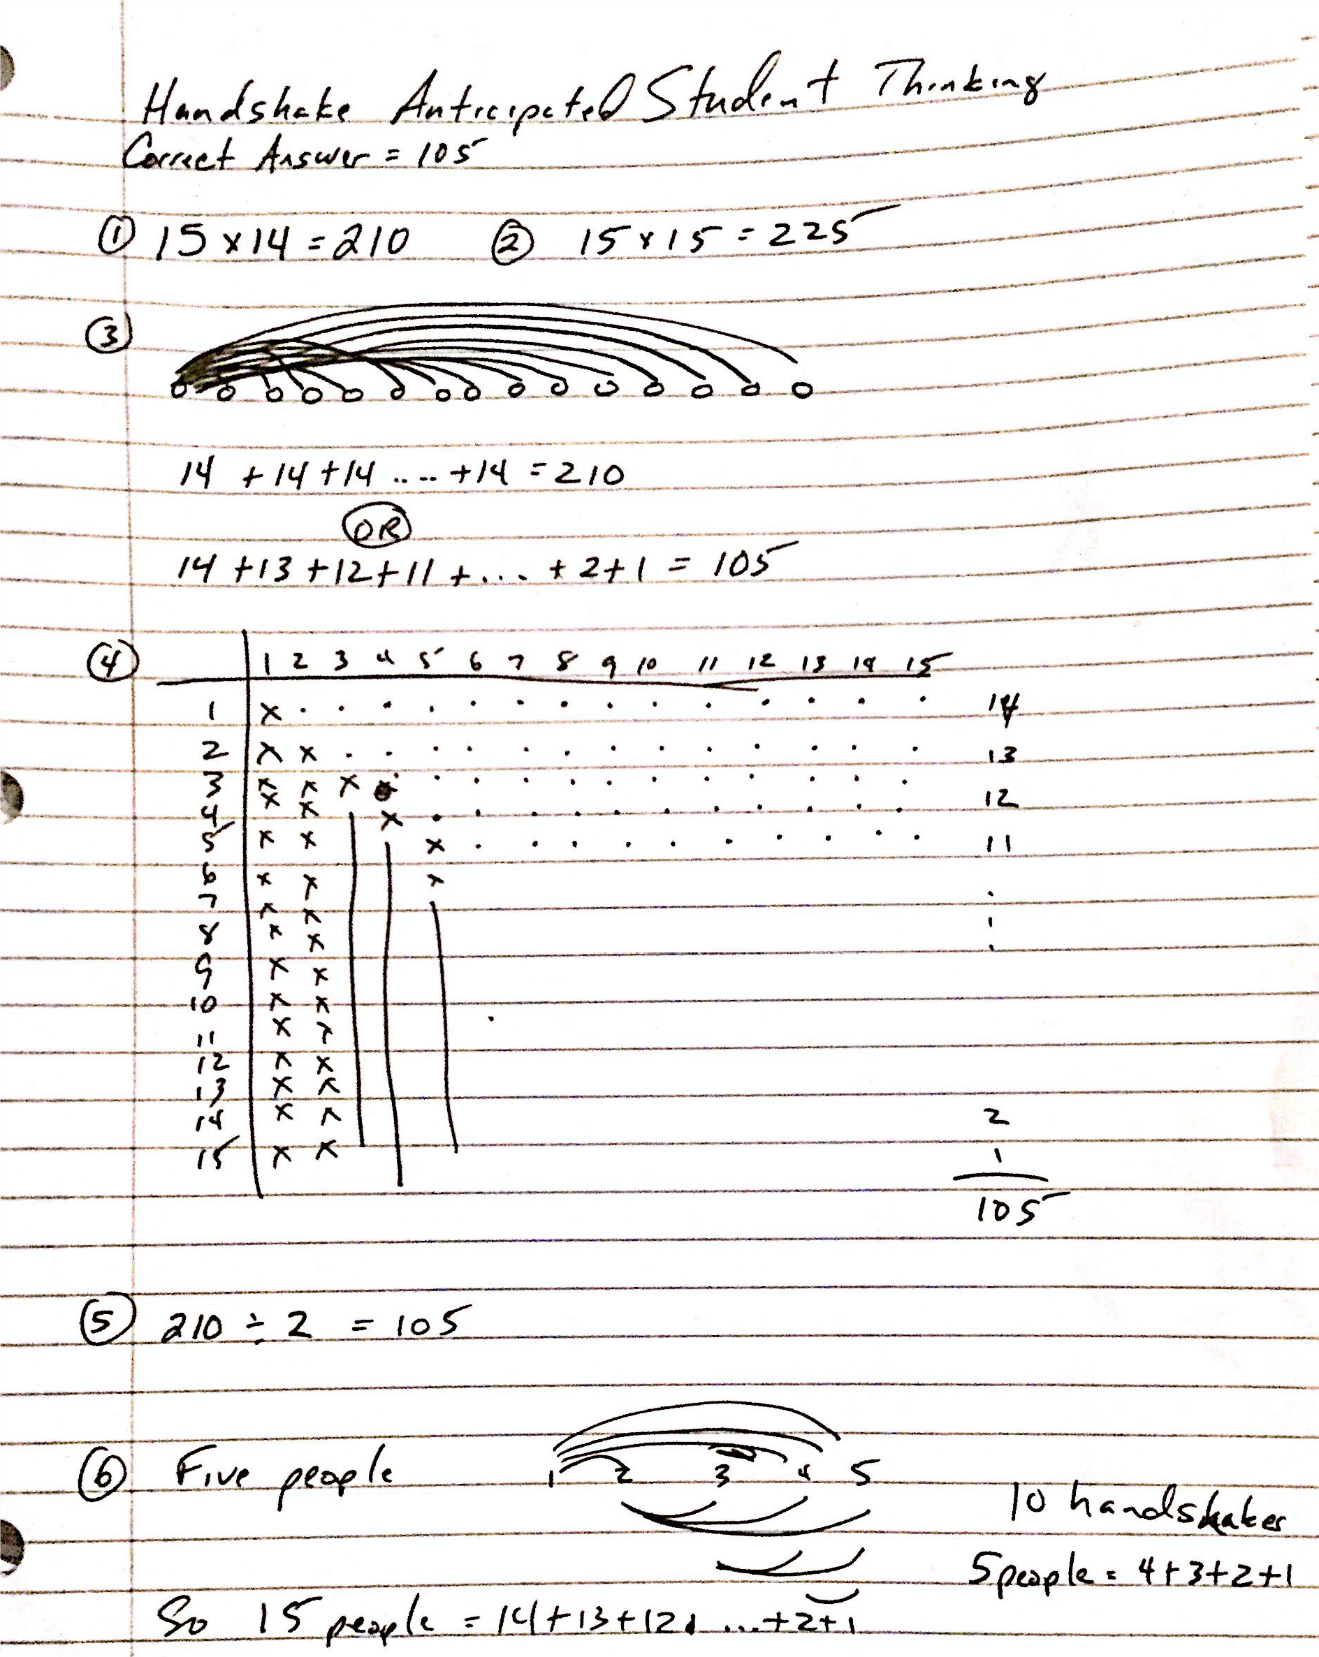 Handshake Anticipated Student Thinking
Correct Answer = 105
① 15 x 14 = 210 ② 15 x 15 = 225
③
14 + 14 + 14 ..... + 14 = 210
OR
14 + 13 + 12 + 11 + ... + 2 + 1 = 105
④ 1 2 3 4 5 6 7 8 9 10 11 12 13 14 15
1 x . . . . . . . . . . . . . . 14
2 x x . . . . . . . . . . . . . 13
3 x x x . . . . . . . . . . . . 12
4 x x x . . . . . . . . . . .
5 x x x . . . . . . . . . . 11
6 x x x
7 x x
8 x x
9 x x
10 x x
11 x x
12 x x
13 x x
14 x x 2
15 x x 1
105
⑤ 210 ÷ 2 = 105
⑥ Five people 1 2 3 4 5
10 handshakes
5 people = 4+3+2+1
So 15 people = 14+13+12+ ...+2+1